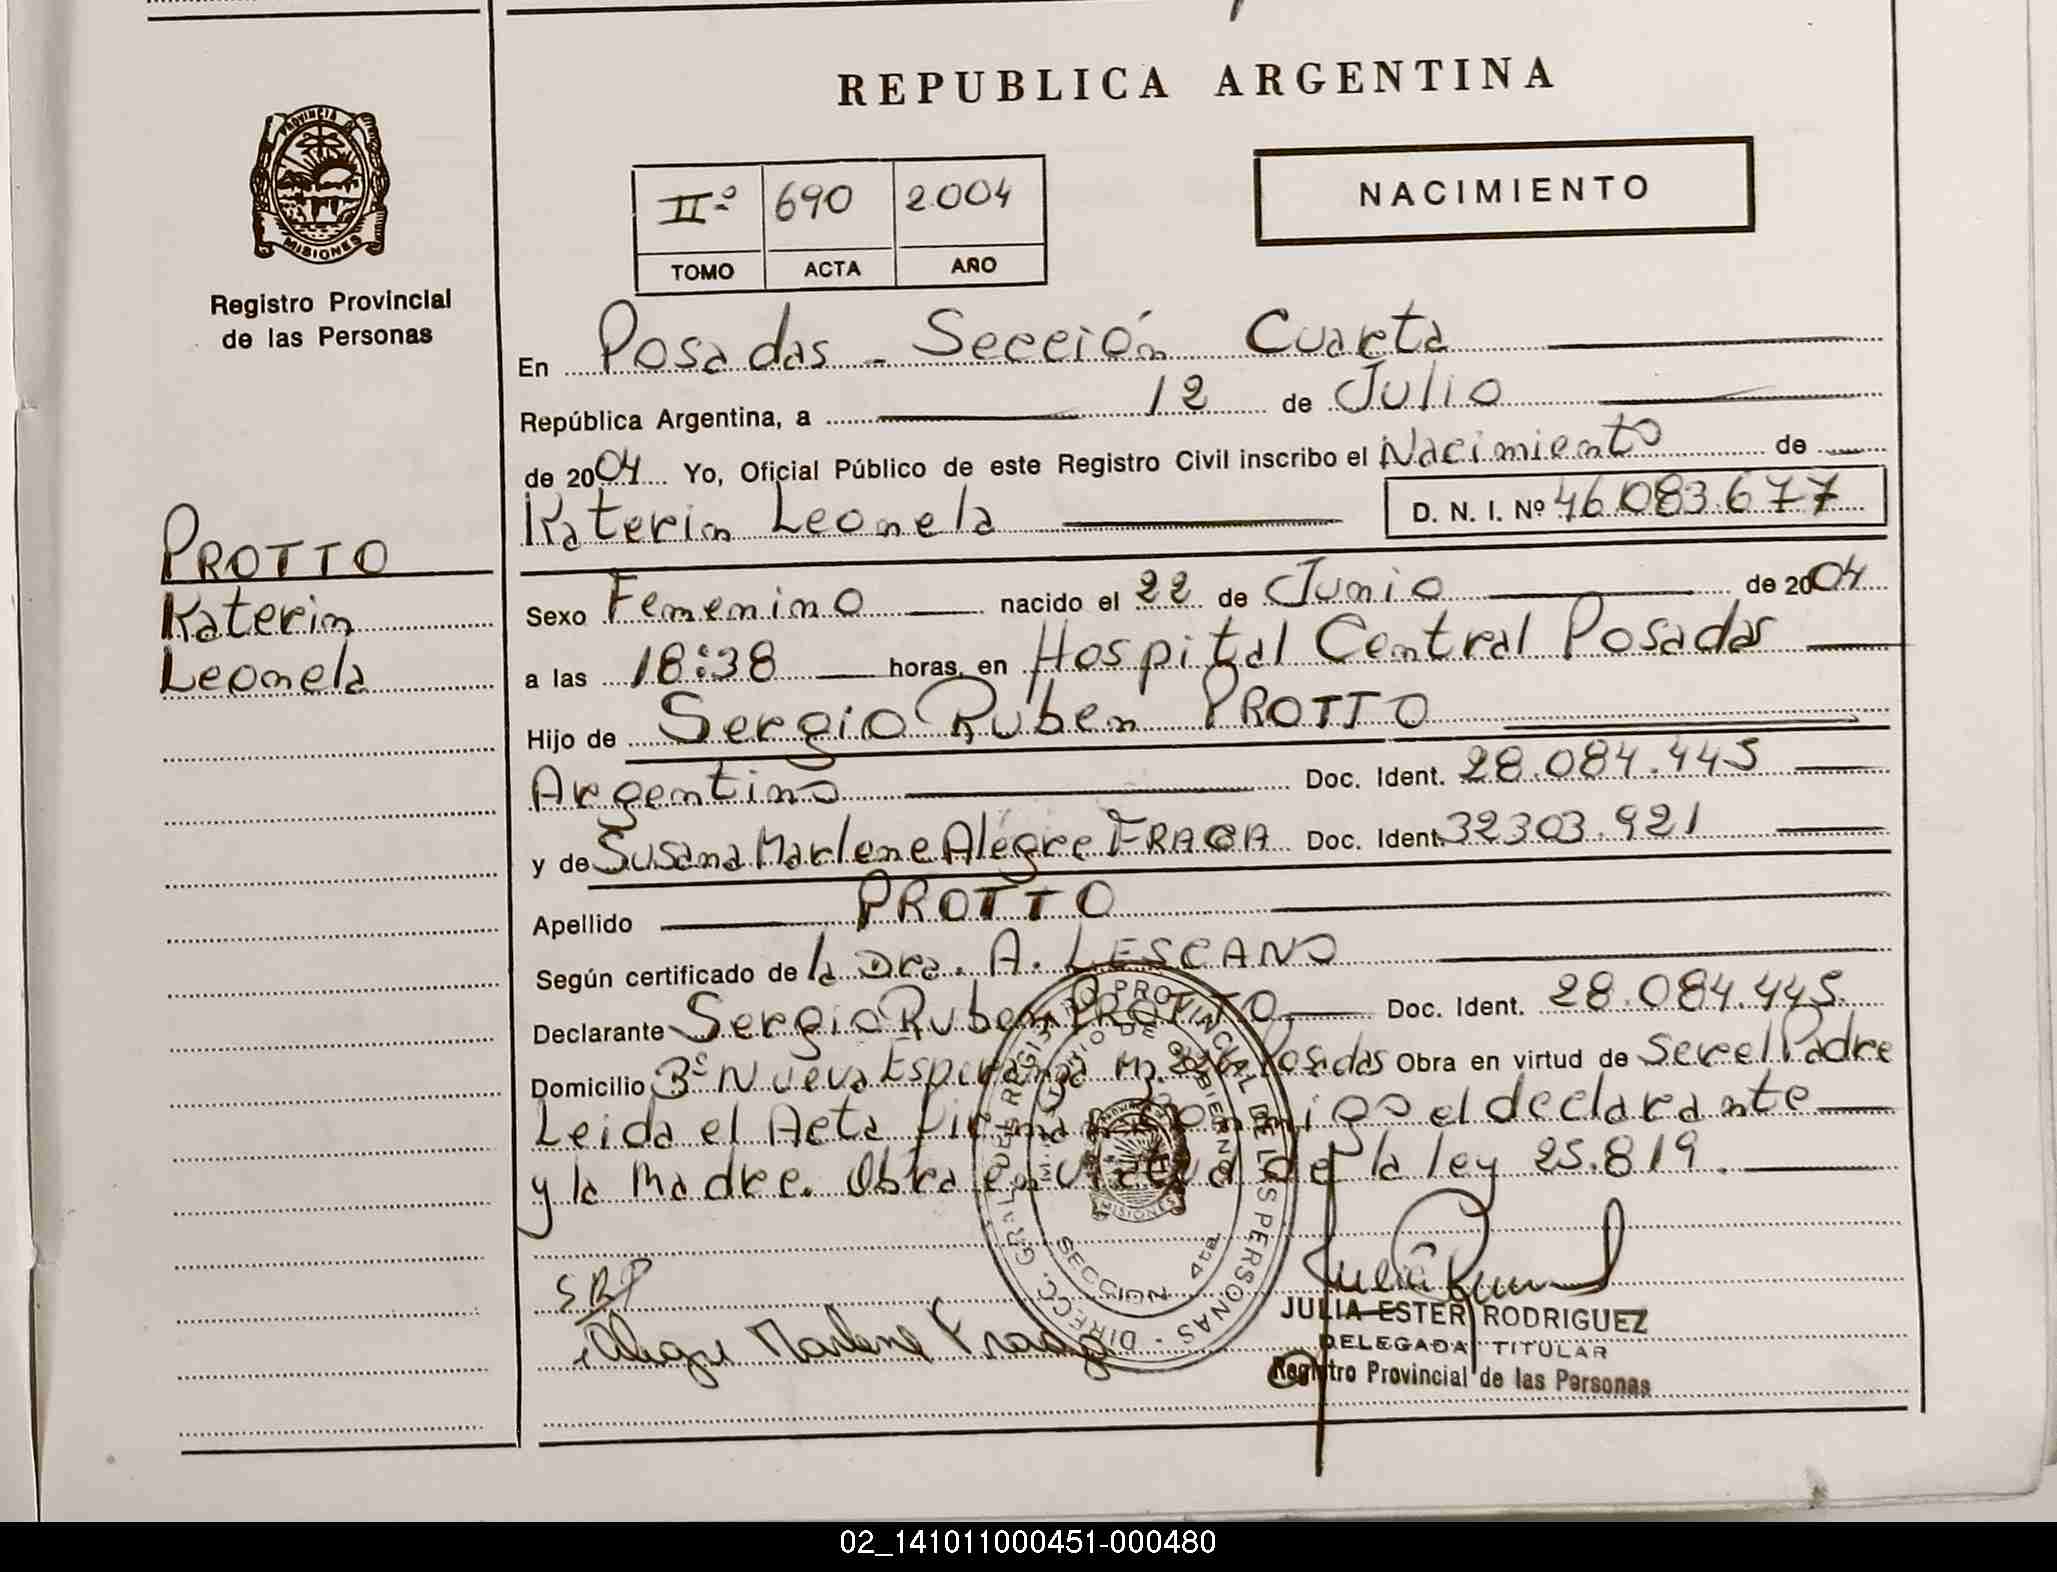 REPUBLICA ARGENTINA
PROVINCIA DE
MISIONES
Registro Provincial
de las Personas
IIº 690 2004
TOMO ACTA AÑO
NACIMIENTO
En Posadas - Sección Cuarta
República Argentina, a 12 de Julio
de 2004 Yo, Oficial Público de este Registro Civil inscribo el Nacimiento de
Katerin Leonela D. N. I. Nº 46.083.677
PROTTO
Katerin
Leonela
Sexo Femenino nacido el 22 de Junio de 2004
a las 18:38 horas, en Hospital Central Posadas
Hijo de Sergio Ruben PROTTO
Argentino Doc. Ident. 28.084.445
y de Susana Marlene Alegre FRAGA Doc. Ident. 32303.921
Apellido PROTTO
Según certificado de la Dra. A. LESCANO
Declarante Sergio Ruben PROTTO Doc. Ident. 28.084.445
Domicilio Bº Nueva Esperanza Mz. Posadas Obra en virtud de Ser el Padre
Leida el Acta Firman conmigo el declarante
y la Madre. Obra en virtud de la ley 25.819.
DIRECC. GRAL. DEL REGISTRO PROVINCIAL DE LAS PERSONAS
MINISTERIO DE GOBIERNO
MISIONES
SECCION 4ta
SRP
Alegre Marlene Fraga
JULIA ESTER RODRIGUEZ
DELEGADA TITULAR
Registro Provincial de las Personas
02_141011000451-000480